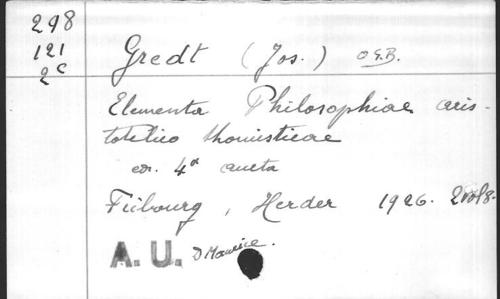 298
121
2c
Gredt (Jos.) O.S.B.
Elementa Philosophiae aris-
totelico thomisticae
ed. 4a aucta
Fribourg, Herder 1926. 2 vols.
A.U. D Maurice.